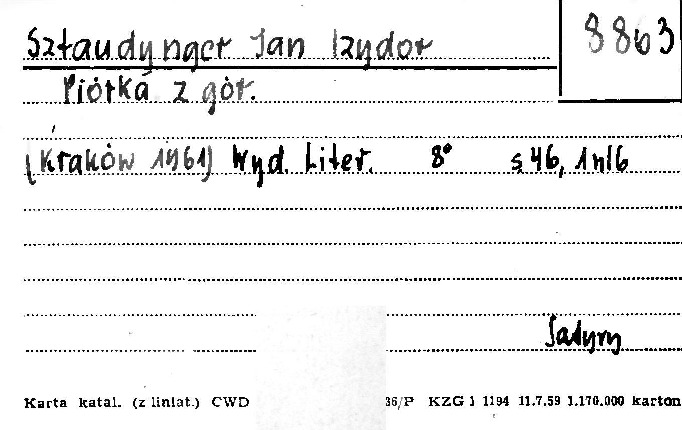 Sztaudynger Jan Izydor
8863
Piórka z gór.
(Kraków 1961) Wyd. Liter. 8° s 46, 1 nlb
Satyry
Karta katal. (z liniat.) CWD 36/P KZG 1 1194 11.7.59 1.170.000 karton